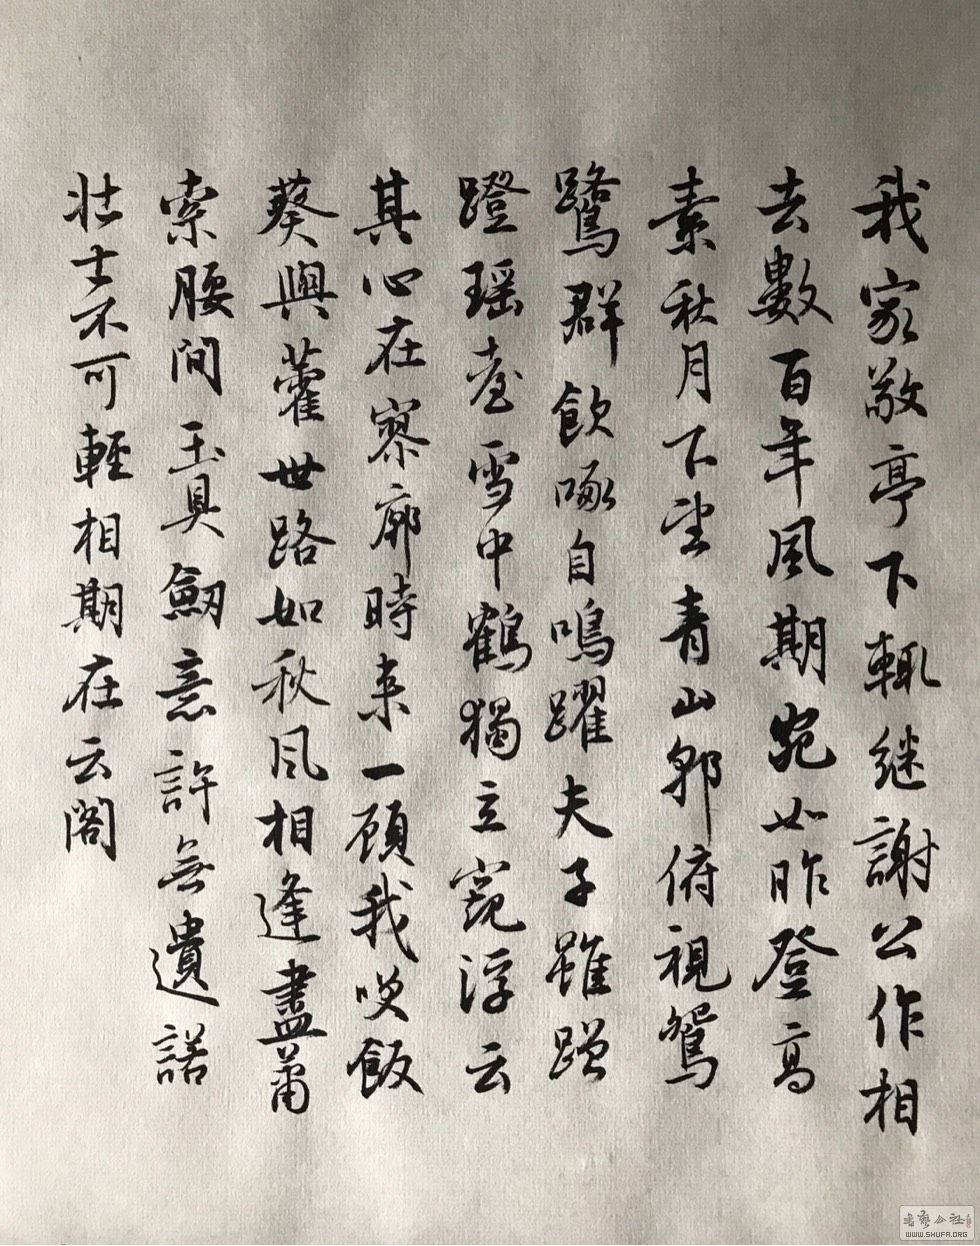 我家敬亭下輒继謝公作相
去數百年風期宛如昨登高
素秋月下望青山郭俯視鴛
鷺群飲啄自鳴躍夫子雖蹭
蹬瑶臺雪中鶴獨立窺浮云
其心在寥廓時来一顧我咲飯
葵與藿世路如秋風相逢盡蕭
索腰間玉具劒意許無遺諾
壯士不可輕相期在云閣
書藝公社
WWW.SHUFA.ORG